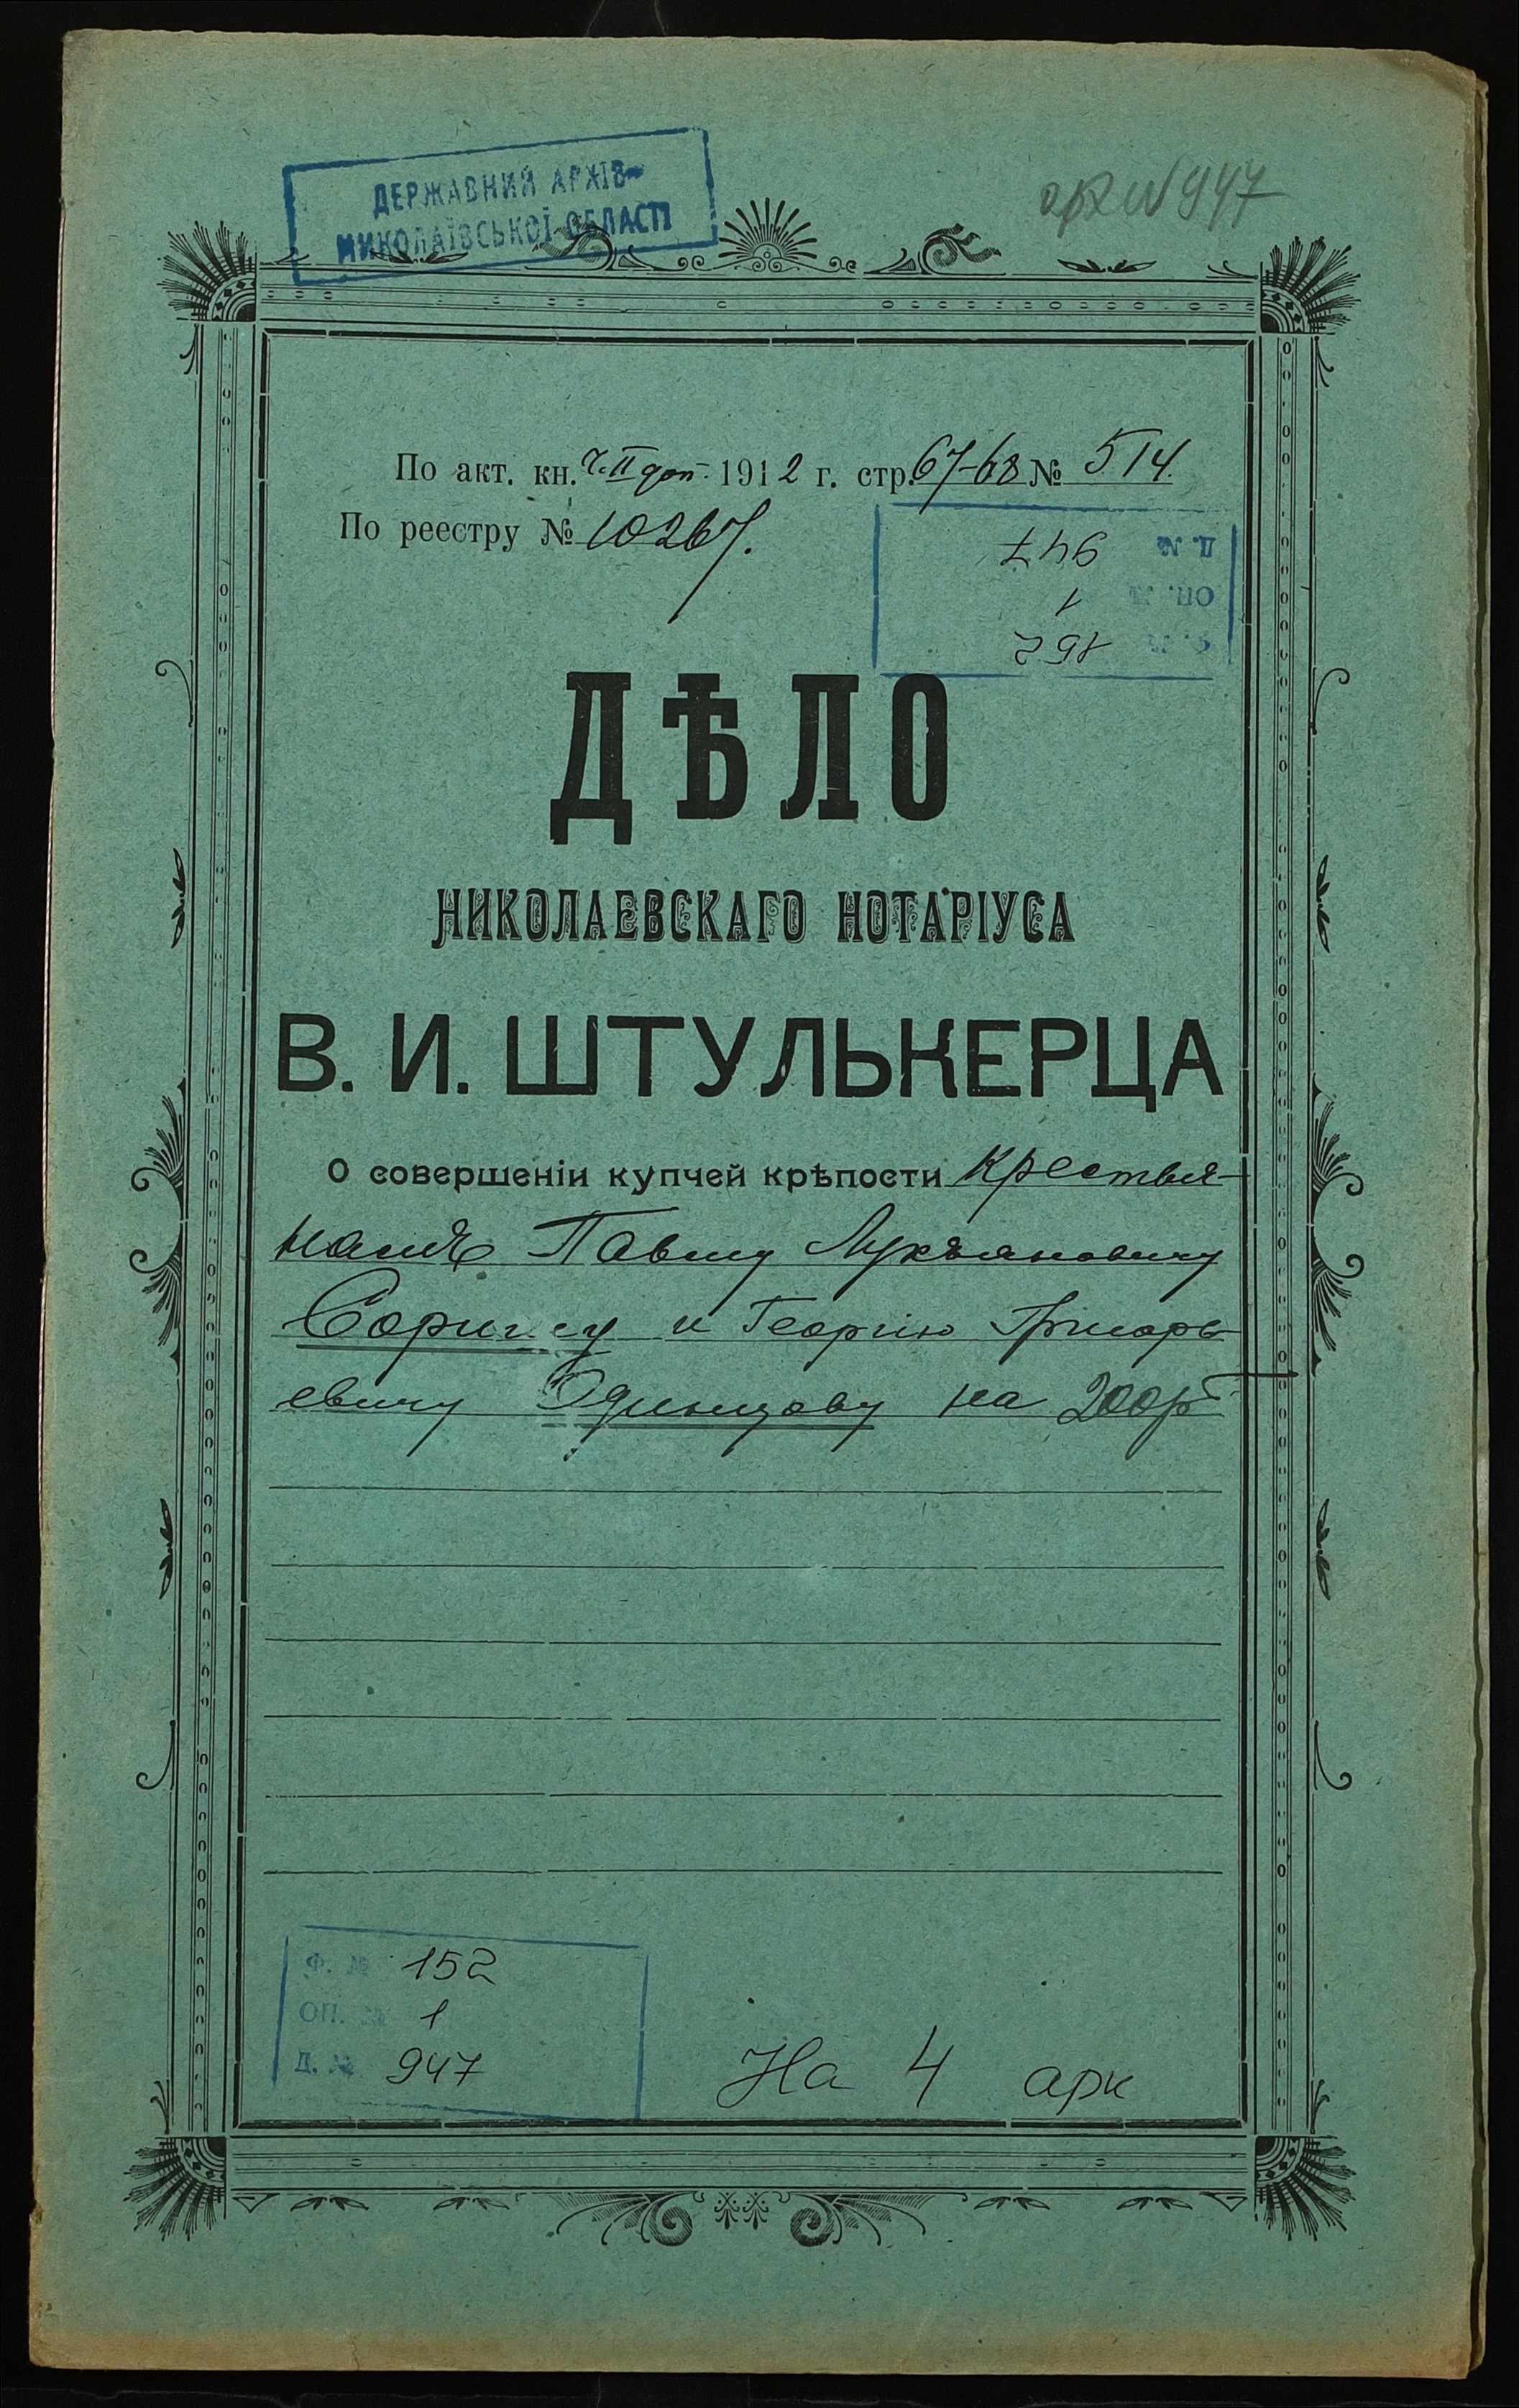 ДЕРЖАВНИЙ АРХІВ
МИКОЛАЇВСЬКОЇ ОБЛАСТІ
арх N 947
По акт. кн. Ч. II доп. 1912 г. стр. 67-68 № 514.
По реестру № 10267.
Д. № 947
ОП. № 1
Ф. № 152
ДѢЛО
НИКОЛАЕВСКАГО НОТАРІУСА
В. И. ШТУЛЬКЕРЦА
О совершеніи купчей крѣпости крестья-
намъ Павлу Лукьяновичу
и Георгію Григорь
евичу Одинцову на 200 р
Ф. № 152
ОП. № 1
Д. № 947
На 4 арк